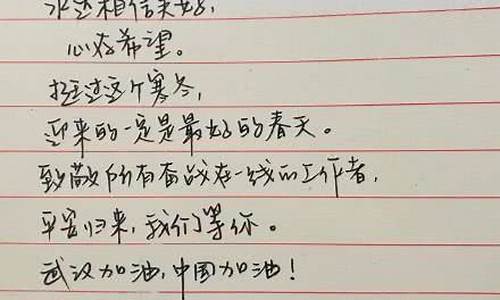 永远相信美好，
心存希望。
挺过这个寒冬，
迎来的一定是最好的春天。
致敬所有奋战在一线的工作者，
平安归来，我们等你。
武汉加油，中国加油！